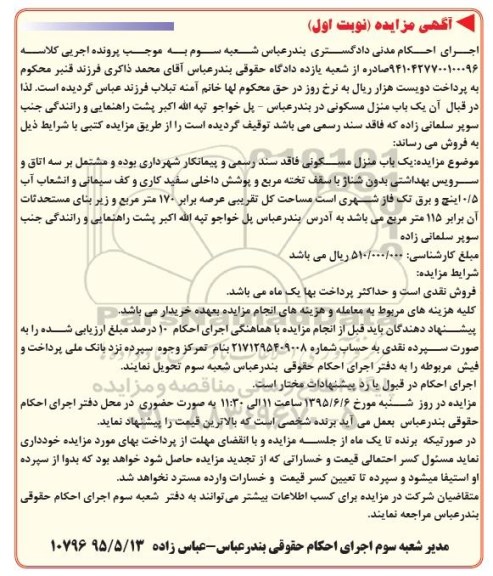 آگهی مزایده (نوبت اول)
اجرای احکام مدنی دادگستری بندرعباس شعبه سوم به موجب پرونده اجریی کلاسه
۹۴۱۰۴۲۷۷۰۰۱۰۰۰۹۶صادره از شعبه یازده دادگاه حقوقی بندرعباس آقای محمد ذاکری فرزند قنبر محکوم
به پرداخت دویست هزار ریال به نرخ روز در حق محکوم لها خانم آمنه تبلاب فرزند عباس گردیده است. لذا
در قبال آن یک باب منزل مسکونی در بندرعباس - پل خواجو تپه الله اکبر پشت راهنمایی و رانندگی جنب
سوپر سلمانی زاده که فاقد سند رسمی می باشد توقیف گردیده است را از طریق مزایده کتبی با شرایط ذیل
به فروش می رساند:
موضوع مزایده:یک باب منزل مسکونی فاقد سند رسمی و پیمانکار شهرداری بوده و مشتمل بر سه اتاق و
سرویس بهداشتی بدون شناژ با سقف تخته مربع و پوشش داخلی سفید کاری و کف سیمانی و انشعاب آب
۰/۵اینچ و برق تک فاز شهری است مساحت کل تقریبی عرصه برابر ۱۷۰ متر مربع و زیر بنای مستحدثات
آن برابر ۱۱۵ متر مربع می باشد به آدرس بندرعباس پل خواجو تپه الله اکبر پشت راهنمایی و رانندگی جنب
سوپر سلمانی زاده
مبلغ کارشناسی: ۵۱۰/۰۰۰/۰۰۰ ریال می باشد
شرایط مزایده:
فروش نقدی است و حداکثر پرداخت بها یک ماه می باشد.
کلیه هزینه های مربوط به معامله و هزینه های انجام مزایده بعهده خریدار می باشد.
پیشنهاد دهندگان باید قبل از انجام مزایده با هماهنگی اجرای احکام ۱۰ درصد مبلغ ارزیابی شده را به
صورت سپرده نقدی به حساب شماره ۲۱۷۱۲۹۵۴۰۹۰۰۸ بنام تمرکز وجوه سپرده نزد بانک ملی پرداخت و
فیش مربوطه را به دفتر اجرای احکام حقوقی بندرعباس شعبه سوم تحویل نمایند.
اجرای احکام در قبول یا رد پیشنهادات مختار است.
مزایده در روز شنبه مورخ ۱۳۹۵/۶/۶ ساعت ۱۱ الی ۱۱:۳۰ به صورت حضوری در محل دفتر اجرای احکام
حقوقی بندرعباس بعمل می آید برنده شخصی است که بالاترین قیمت را پیشنهاد نماید.
در صورتیکه برنده تا یک ماه از جلسه مزایده و با انقضای مهلت از پرداخت بهای مورد مزایده خودداری
نماید مسئول کسر احتمالی قیمت و خساراتی که از تجدید مزایده حاصل شود خواهد بود که بدوا از سپرده
او استیفا میشود و سپرده تا تعیین کسر قیمت و خسارات وارده مسترد نخواهد شد.
متقاضیان شرکت در مزایده برای کسب اطلاعات بیشتر می‌توانند به دفتر شعبه سوم اجرای احکام حقوقی
بندرعباس مراجعه نمایند.
مدیر شعبه سوم اجرای احکام حقوقی بندرعباس-عباس زاده ۹۵/۵/۱۳ ۱۰۷۹۶